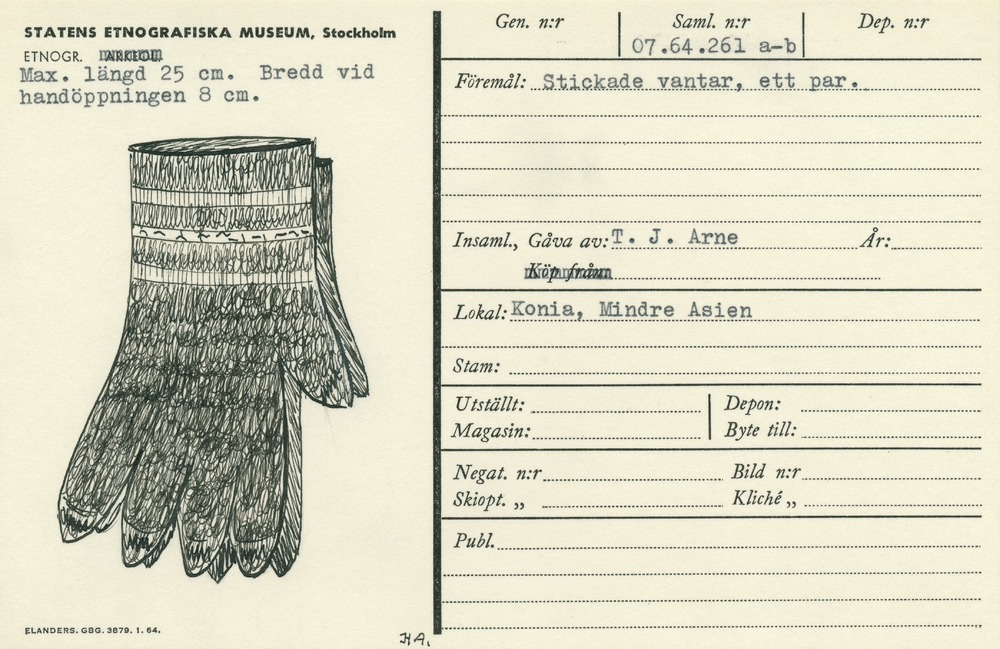 STATENS ETNOGRAFISKA MUSEUM, Stockholm
ETNOGR. ARKEOL.
Max. längd 25 cm. Bredd vid
handöppningen 8 cm.
ELANDERS. GBG. 3879. 1. 64.
H A.
Gen. n:r Saml. n:r Dep. n:r
07.64.261 a-b
Föremål: Stickade vantar, ett par.
Insaml., Gåva av: T. J. Arne År:
Köp från
Lokal: Konia, Mindre Asien
Stam:
Utställt: Depon:
Magasin: Byte till:
Negat. n:r Bild n:r
Skiopt. „ Kliché „
Publ.